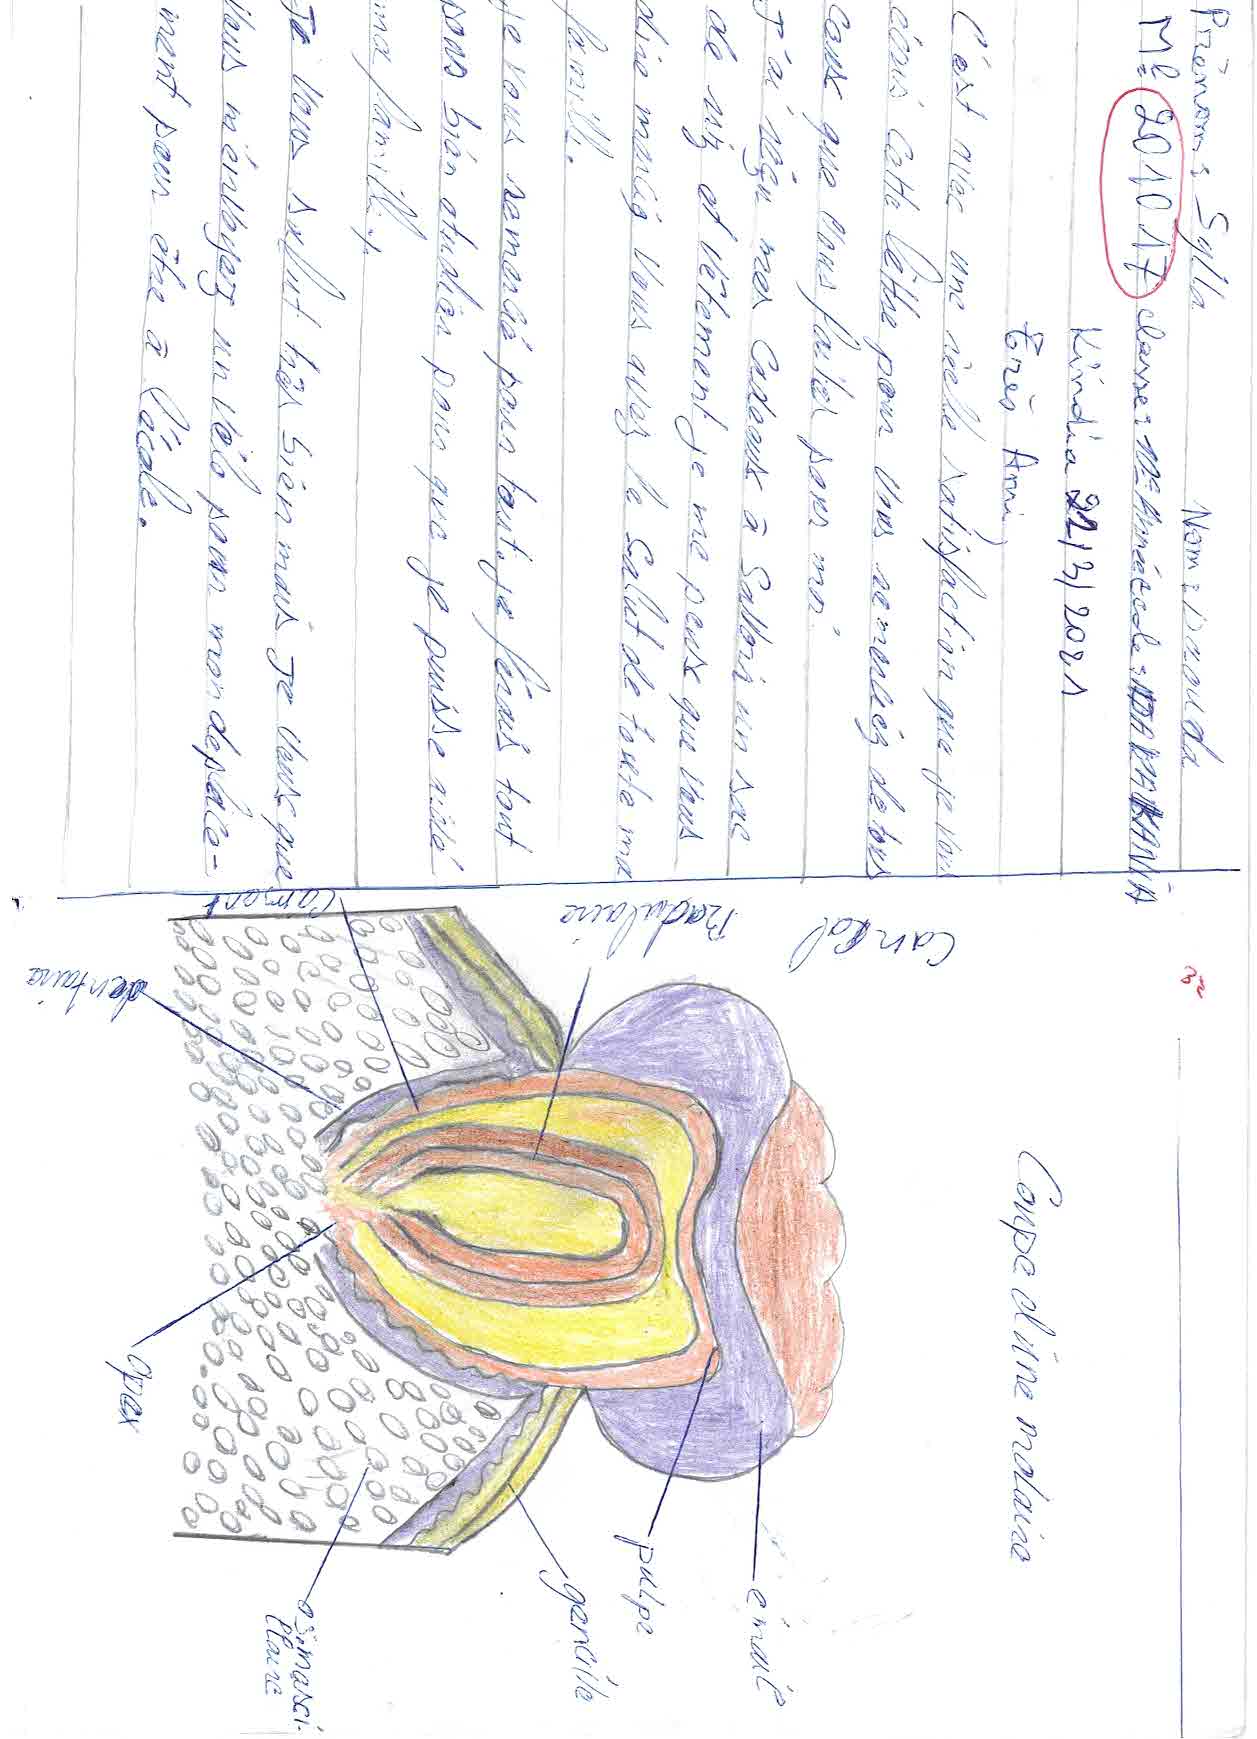 Prénom : Sylla Nom : Daouda
Mle 201017 classe : 10e Année école : DAMAKANIA
Kindia 21/3/2021
Très Ami,
C'est avec une réelle satisfaction que je vous
écris cette lettre pour vous remercièz de tous
caus que vous faites pour moi.
J'ai réçu mes Cadeaux à Savoir un sac
de riz et vêtement je me peuse que vous
dire mercie vous avez le Salut de toute ma
famille.
je vous remercié pour tout, je ferais tout
pour bien étudier pour que je puisse aidé
ma famille.
Je vous salut très bien mais Je veux que
vous m'envoyez un Vélo pour mon déplace-
ment pour être à l'école.
3
Coupe d'une molaire
émail
pulpe
gencive
os maxi-
llaire
apex
dentaire
Cement
Canal
Radulaire